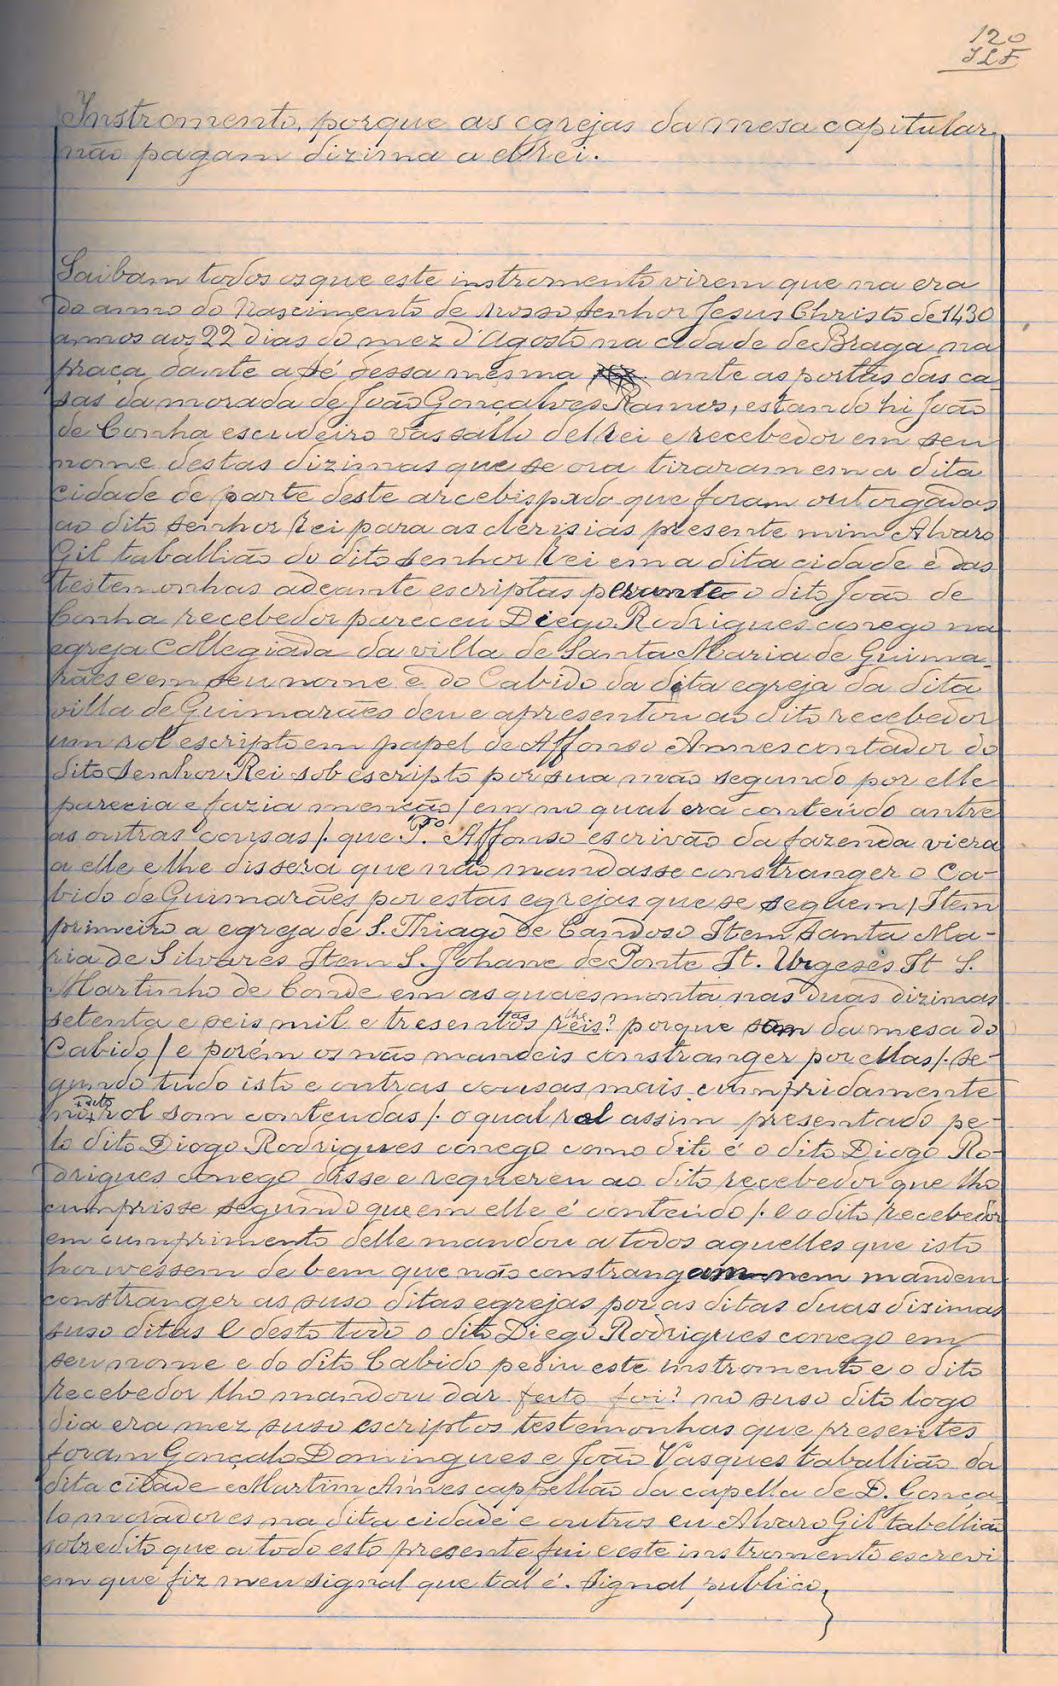 120
JLF
Instromento, porque as egrejas da mesa capitular
não pagam dizima a elrei.
Saibam todos os que este instromento virem que na era
do anno do Nascimento de Nosso Senhor Jesus Christo de 1430
annos aos 22 dias do mez d'Agosto na cidade de Braga na
praça dante a Sé dessa mesma ante as portas das ca
sas da morada de João Gonçalves Ramos, estando hi João
de Conha escudeiro vassallo delrei e recebedor em seu
nome destas dizimas que se ora tiraram em a dita
cidade de parte deste arcebispado que foram outorgadas
ao dito senhor Rei para as clerisias presente mim Alvaro
Gil taballião do dito senhor Rei em a dita cidade e das
testemonhas adeante escriptas perante o dito João de
Conha recebedor pareceu Diego Rodrigues conego na
egreja Collegiada da villa de Santa Maria de Guima-
rães e em seu nome e do Cabido da dita egreja da dita
villa de Guimarães deu e apresentou ao dito recebedor
um rol escripto em papel de Affonso Annes contador do
dito Senhor Rei sob escripto por sua mão segundo por elle
parecia e fazia menção / em no qual era conteúdo antre
as outras cousas /. que P.ro Affonso escrivão da fazenda viera
a elle e lhe dissera que não mandasse constranger o Ca-
bido de Guimarães por estas egrejas que se seguem / Item
primeiro a egreja de S. Thiago de Candoso Item Santa Ma-
ria de Silvares Item S. Johane de Ponte It. Urgeses It S.
Martinho de Conde em as quaes monta nas duas dizimas
setenta e seis mil e tresentos reis? porque som da mesa do
Cabido / e porém os não mandeis constranger por ellas /. se-
gundo tudo isto e outras cousas mais cumpridamente
no dito rol som conteudas /. o qual rol assim presentado pe-
lo dito Diogo Rodrigues conego como dito é o dito Diogo Ro-
drigues conego disse e requereu ao dito recebedor que lho
cumprisse segundo que em elle é conteúdo /. e o dito recebedor
em cumprimento delle mandou a todos aquelles que isto
houvessem de bem que não constrangam nem mandem
constranger as suso ditas egrejas por as ditas duas dizimas
suso ditas E desto todo o dito Diego Rodrigues conego em
seu nome e do dito Cabido pediu este instromento e o dito
recebedor lho mandou dar feito foi? no suso dito logo
dia era mez suso escriptos testemonhas que presentes
foram Gonçalo Domingues e João Vasques taballião da
dita cidade e Martim Annes cappellão da capella de D. Gonça
lo moradores na dita cidade e outros eu Alvaro Gil tabellião
sobredito que a todo esto presente fui e este instromento escrevi
em que fiz meu signal que tal é. Signal publico